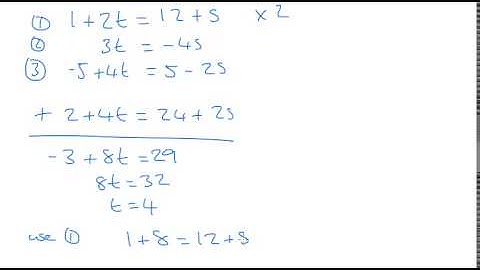 ① 1+2t = 12+s ×2
② 3t = -4s
③ -5+4t = 5-2s
+ 2+4t = 24+2s
-3+8t = 29
8t = 32
t = 4
use ① 1+8 = 12+s